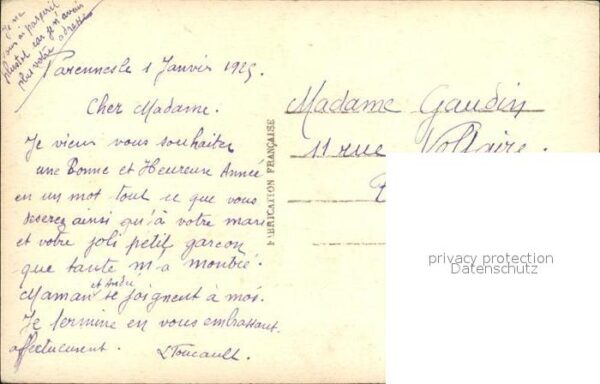 Je ne
vous ai pas écrit
plustôt car je n'avais
plus votre adresse
Parennes le 1 Janvier 1925.
Cher Madame.
Je viens vous souhaiter
une Bonne et Heureuse Année
en un mot tout ce que vous
desirez ainsi qu'à votre mari
et votre joli petit garcon
que tante m'a montré.
Maman et André se joignent à moi.
Je termine en vous embrassant
affectueusement.
L Foucault.
FABRICATION FRANÇAISE
Madame Gaudin
11 rue Voltaire.
privacy protection
Datenschutz